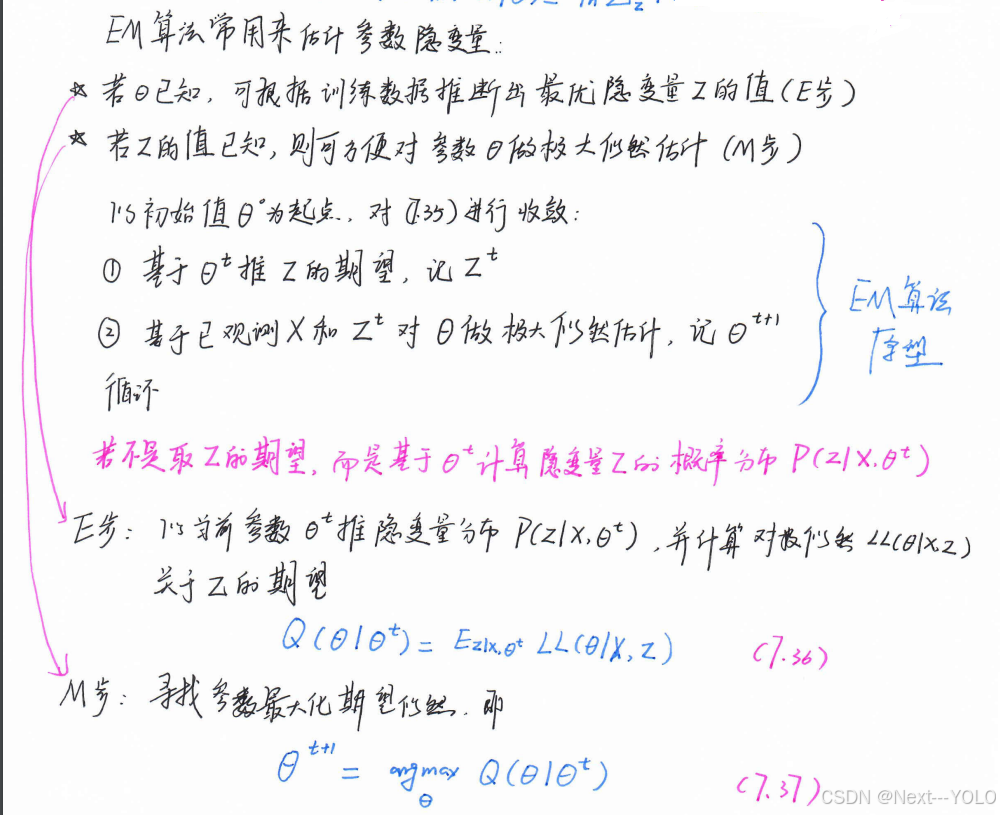 EM算法常用来估计参数隐变量:
☆ 若θ已知, 可根据训练数据推断出最优隐变量Z的值(E步)
☆ 若Z的值已知, 则可方便对参数θ做极大似然估计(M步)
以初始值θ⁰为起点, 对(7.35)进行收敛:
① 基于θᵗ推Z的期望, 记Zᵗ
② 基于已观测X和Zᵗ对θ做极大似然估计, 记θᵗ⁺¹
循环
EM算法
原型
若不是取Z的期望, 而是基于θᵗ计算隐变量Z的概率分布P(Z|X,θᵗ)
E步: 以当前参数θᵗ推隐变量分布P(Z|X,θᵗ), 并计算对数似然LL(θ|X,Z)
关于Z的期望
Q(θ|θᵗ) = E_{Z|X,θᵗ} LL(θ|X,Z) (7.36)
M步: 寻找参数最大化期望似然, 即
θᵗ⁺¹ = argmax_θ Q(θ|θᵗ) (7.37)
CSDN @Next---YOLO